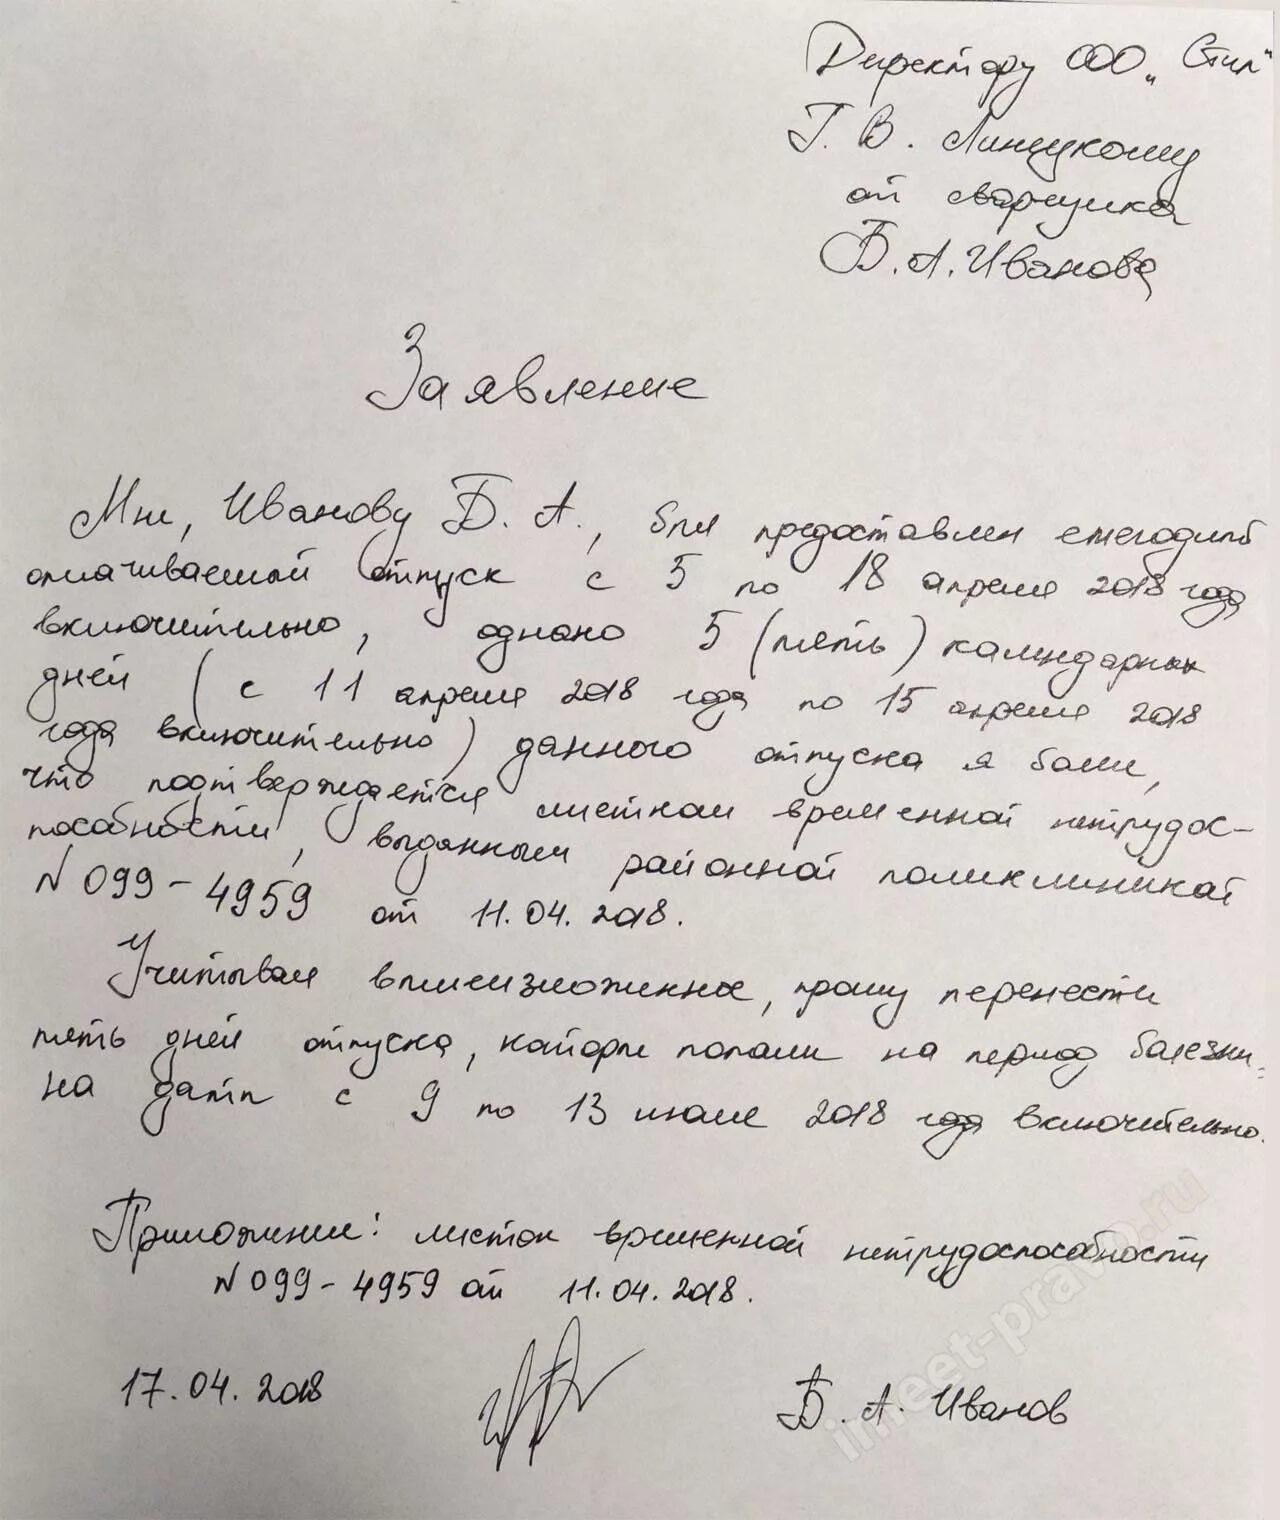 Директору ООО „Стил"
Г. В. Линцукому
от сварщика
Б. А. Иванова
Заявление
Мне, Иванову Б. А., был предоставлен ежегодный
оплачиваемый отпуск с 5 по 18 апреля 2018 года
включительно, однако 5 (пять) календарных
дней (с 11 апреля 2018 года по 15 апреля 2018
года включительно) данного отпуска я болел,
что подтверждается листком временной нетрудос-
пособности, выданным районной поликлиникой
N 099-4959 от 11.04.2018.
Учитывая вышеизложенное, прошу перенести
пять дней отпуска, которые попали на период болезни,
на даты с 9 по 13 июля 2018 года включительно.
Приложение: листок временной нетрудоспособности
N 099-4959 от 11.04.2018.
17.04.2018
Б. А. Иванов
imeet-pravo.ru